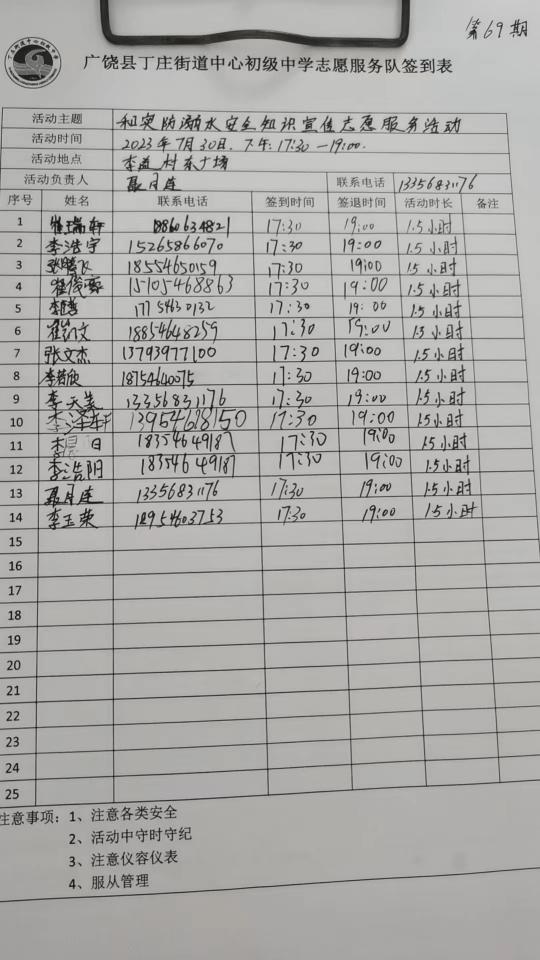 第69期
广饶县丁庄街道中心初级中学志愿服务队签到表
活动主题 和安防溺水安全知识宣传志愿服务活动
活动时间 2023年7月30日,下午:17:30—19:00.
活动地点 李道村东广场
活动负责人 聂月连 联系电话 13356831176
序号 姓名 联系电话 签到时间 签退时间 活动时长 备注
1 崔瑞轩 17:30 19:00 1.5小时
2 李浩宇 15265866070 17:30 19:00 1.5小时
3 18554650159 17:30 19:00 1.5小时
4 崔俊 15105468863 17:30 19:00 1.5小时
5 17:30 19:00 1.5小时
6 崔 文 18854648259 17:30 19:00 1.5小时
7 张文杰 13793977100 17:30 19:00 1.5小时
8 李若欣 18754640075 17:30 19:00 1.5小时
9 李天美 13356831176 17:30 19:00 1.5小时
10 李泽轩 13954618150 17:30 19:00 1.5小时
11 18354649187 17:30 19:00 1.5小时
12 李浩阳 18354649187 17:30 19:00 1.5小时
13 聂月连 13356831176 17:30 19:00 1.5小时
14 李玉荣 18954603753 17:30 19:00 1.5小时
15
16
17
18
19
20
21
22
23
24
25
注意事项：1、注意各类安全
2、活动中守时守纪
3、注意仪容仪表
4、服从管理